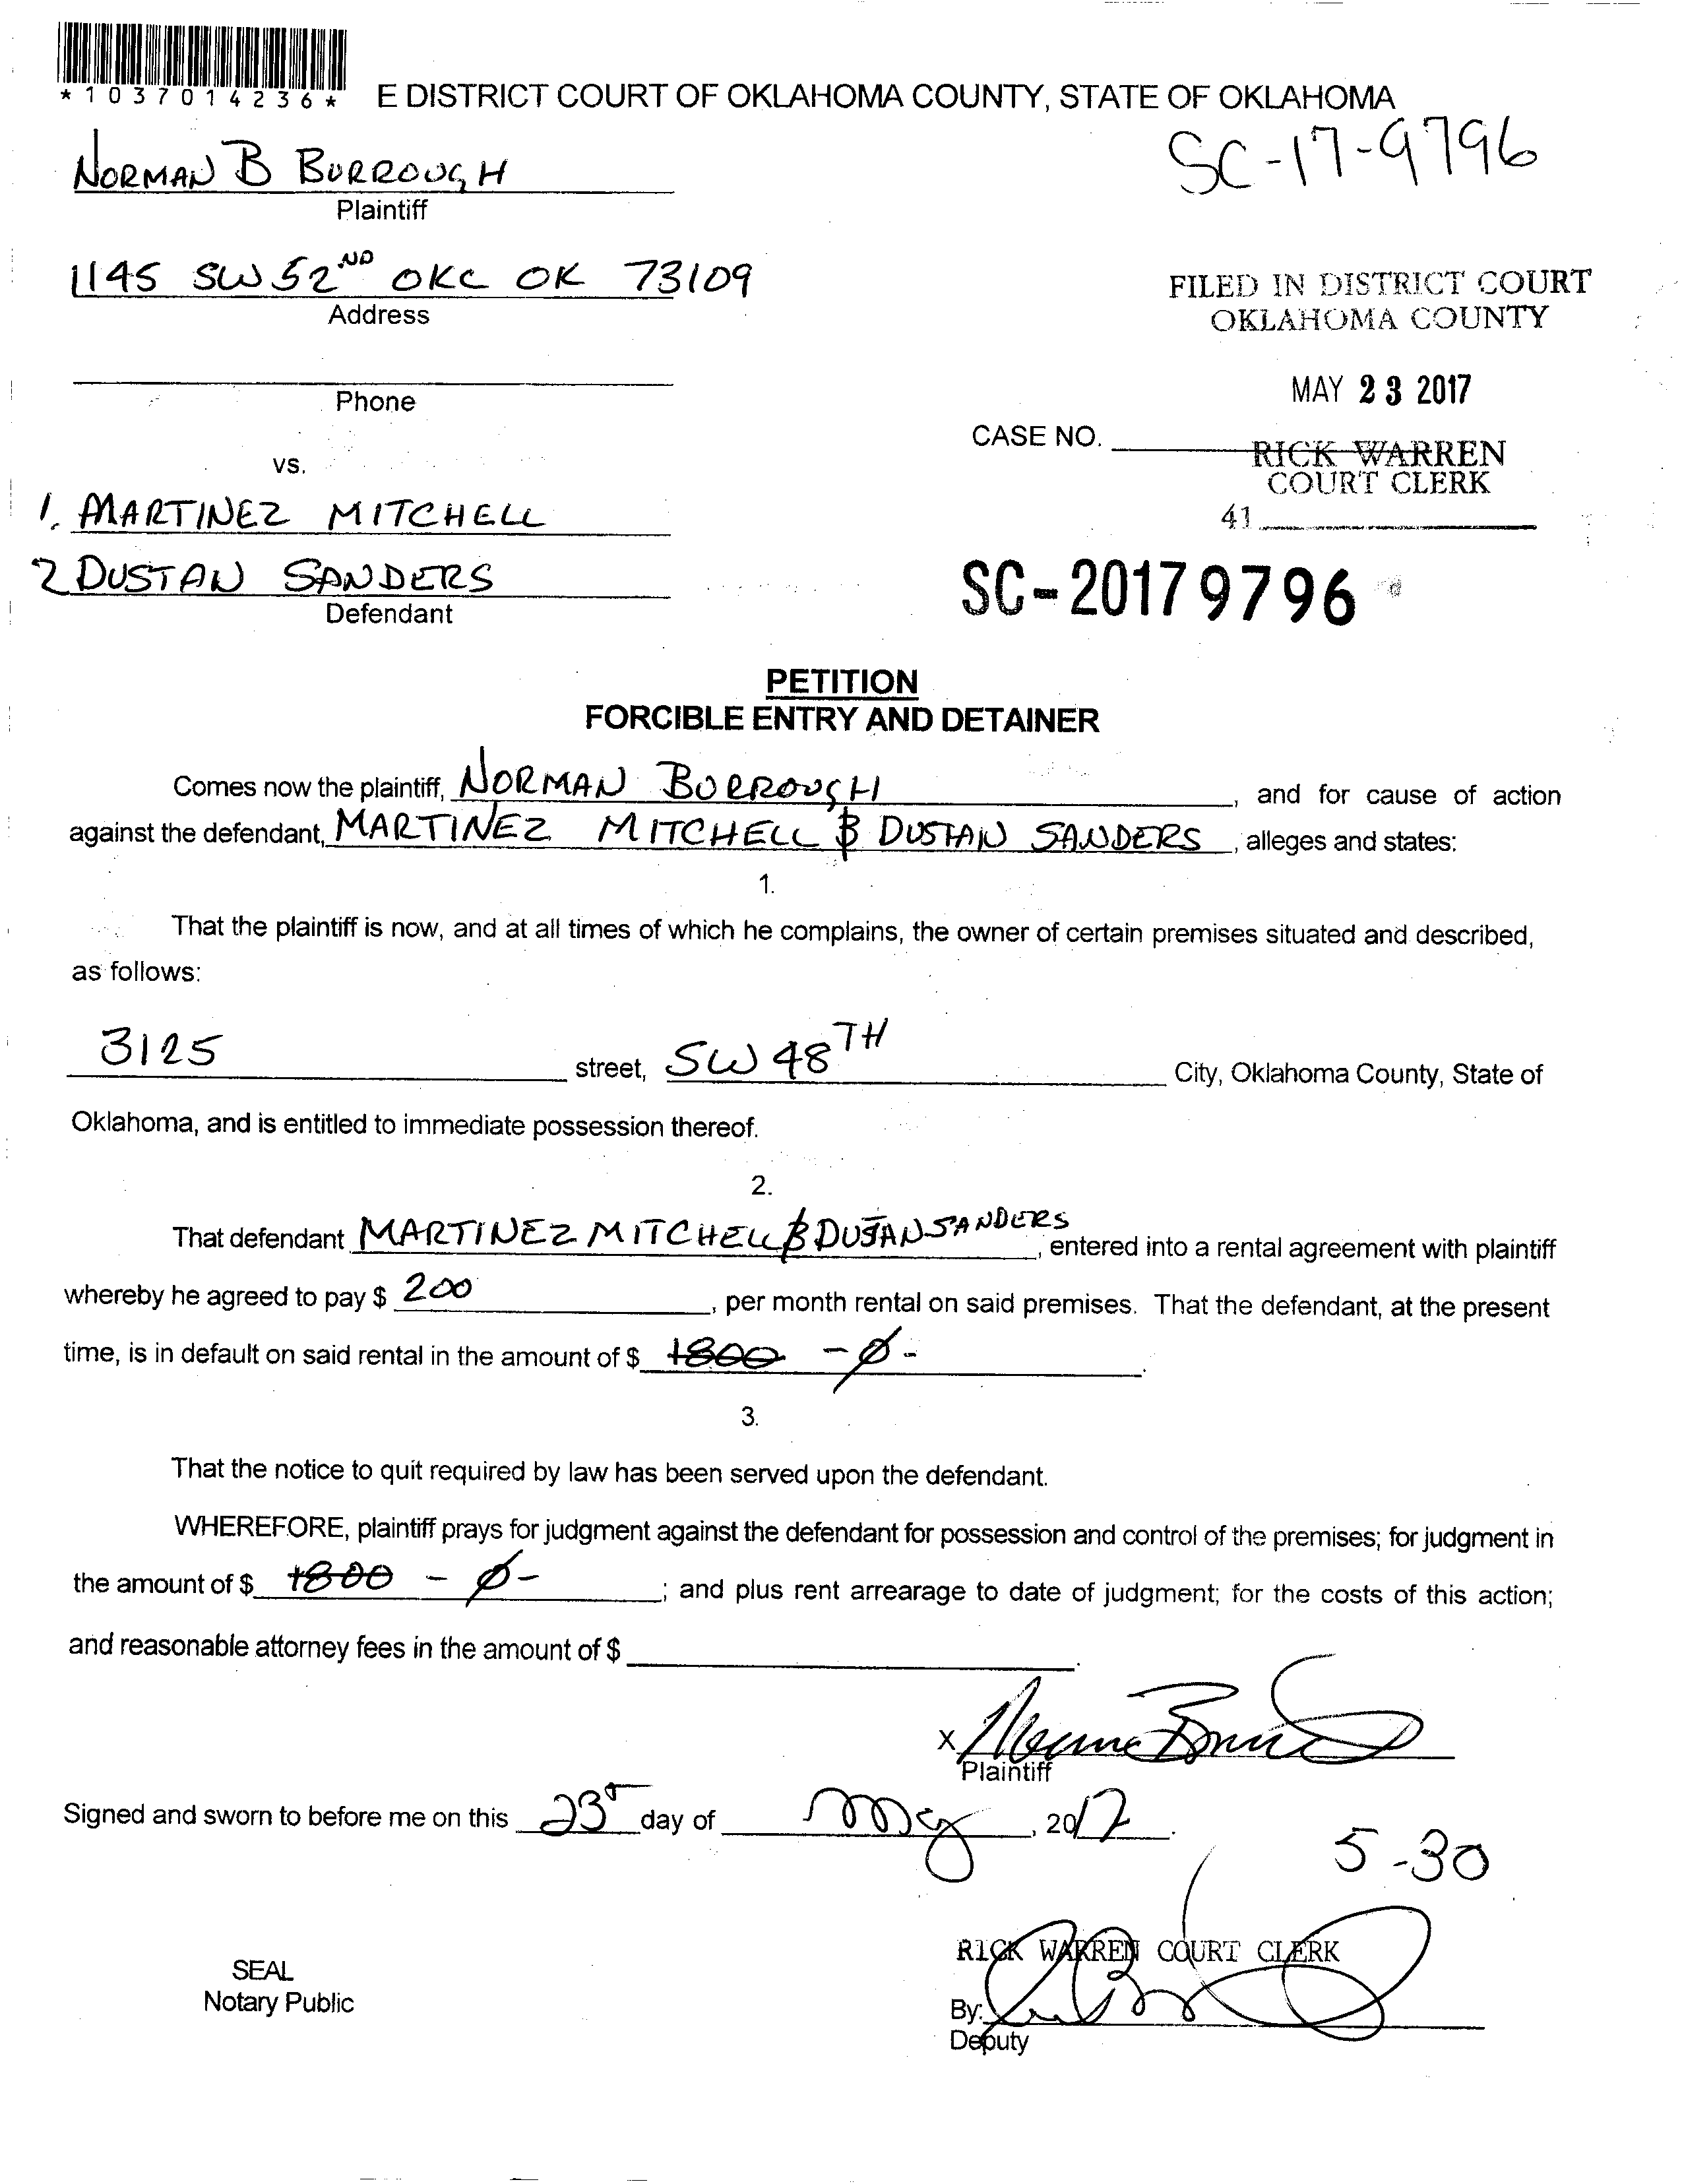 *1037014236*
E DISTRICT COURT OF OKLAHOMA COUNTY, STATE OF OKLAHOMA
SC-17-9796
NORMAN B BURROUGH
Plaintiff
1145 SW 52ND OKC OK 73109
Address
FILED IN DISTRICT COURT
OKLAHOMA COUNTY
Phone
MAY 23 2017
CASE NO.
RICK WARREN
COURT CLERK
41
vs.
1. MARTINEZ MITCHELL
2 DUSTAN SANDERS
Defendant
SC-2017 9796
PETITION
FORCIBLE ENTRY AND DETAINER
Comes now the plaintiff, NORMAN BURROUGH, and for cause of action
against the defendant, MARTINEZ MITCHELL & DUSTAN SANDERS, alleges and states:
1.
That the plaintiff is now, and at all times of which he complains, the owner of certain premises situated and described,
as follows:
3125 street, SW 48TH City, Oklahoma County, State of
Oklahoma, and is entitled to immediate possession thereof.
2.
That defendant MARTINEZ MITCHELL & DUSTAN SANDERS, entered into a rental agreement with plaintiff
whereby he agreed to pay $ 200, per month rental on said premises. That the defendant, at the present
time, is in default on said rental in the amount of $ 1800 -0-.
3.
That the notice to quit required by law has been served upon the defendant.
WHEREFORE, plaintiff prays for judgment against the defendant for possession and control of the premises; for judgment in
the amount of $ 1800 -0-; and plus rent arrearage to date of judgment; for the costs of this action;
and reasonable attorney fees in the amount of $ .
X
Plaintiff
Signed and sworn to before me on this 23 day of May, 2017.
5-30
RICK WARREN COURT CLERK
SEAL
Notary Public
By:
Deputy